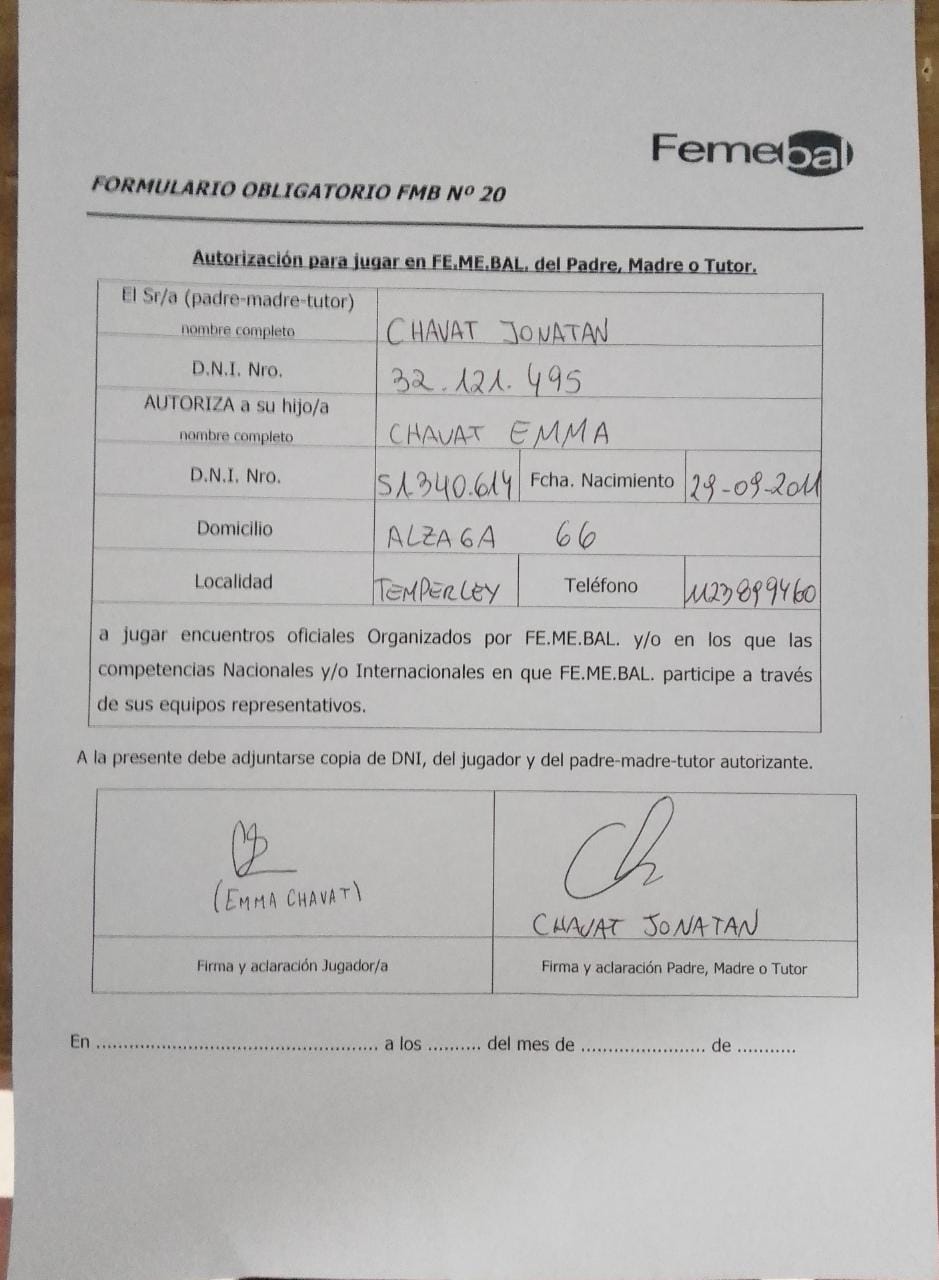 Femebal
FORMULARIO OBLIGATORIO FMB Nº 20
Autorización para jugar en FE.ME.BAL. del Padre, Madre o Tutor.
El Sr/a (padre-madre-tutor)
nombre completo
CHAVAT JONATAN
D.N.I. Nro.
32.121.495
AUTORIZA a su hijo/a
nombre completo
CHAVAT EMMA
D.N.I. Nro.
51.340.614
Fcha. Nacimiento
29-09-2011
Domicilio
ALZAGA 66
Localidad
TEMPERLEY
Teléfono
1123899460
a jugar encuentros oficiales Organizados por FE.ME.BAL. y/o en los que las
competencias Nacionales y/o Internacionales en que FE.ME.BAL. participe a través
de sus equipos representativos.
A la presente debe adjuntarse copia de DNI, del jugador y del padre-madre-tutor autorizante.
(EMMA CHAVAT)
Ch
CHAVAT JONATAN
Firma y aclaración Jugador/a
Firma y aclaración Padre, Madre o Tutor
En ................................................. a los .......... del mes de ....................... de ...........